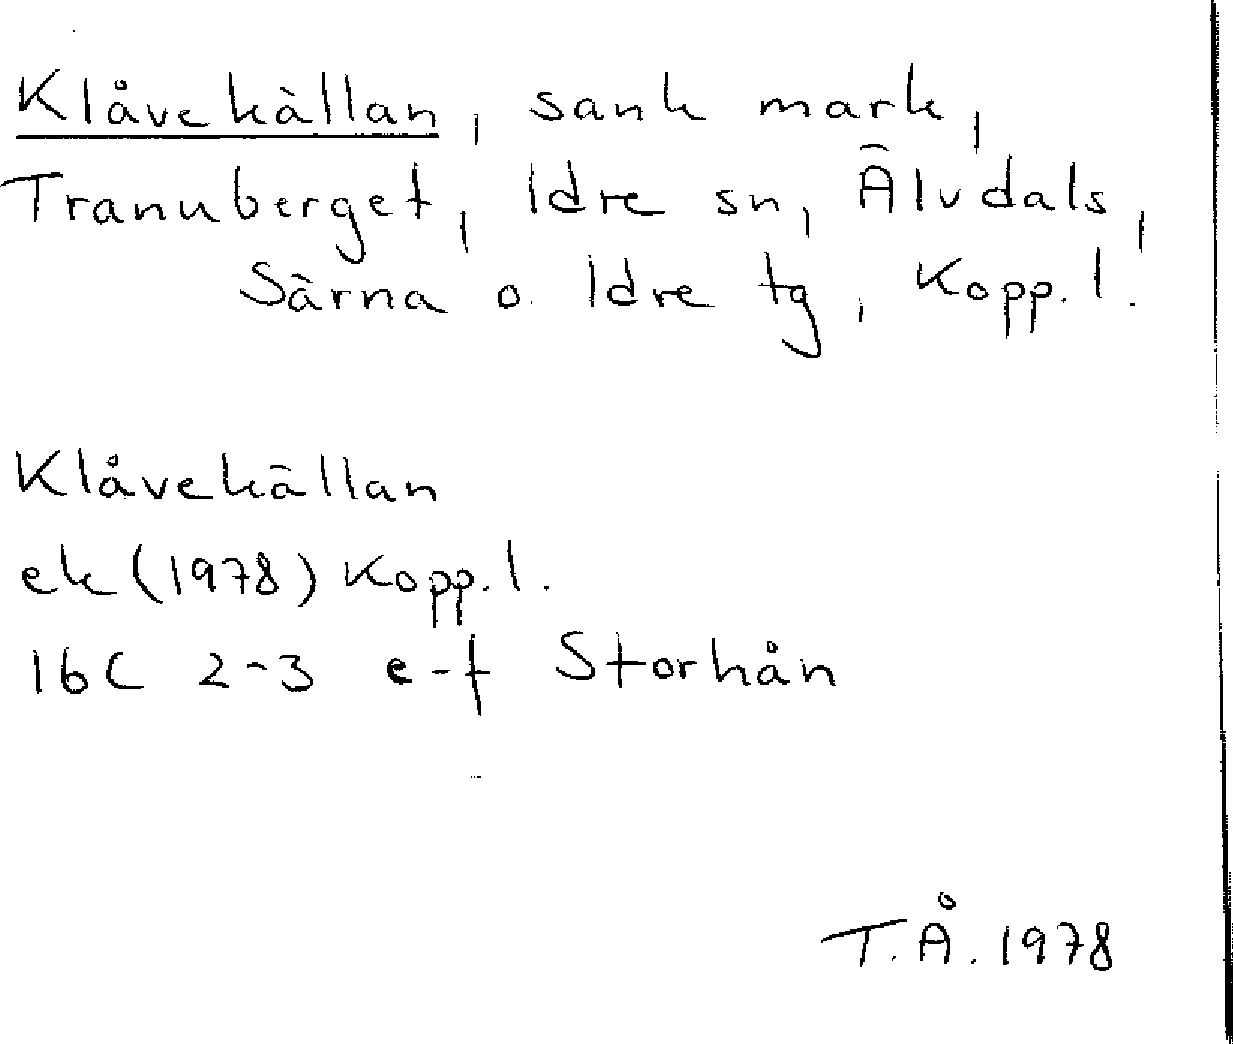 Klåvekällan, sank mark,
Tranuberget, Idre sn, Älvdals,
Särna o. Idre tg, Kopp. l.
Klåvekällan
ek (1978) Kopp. l.
16C 2-3 e-f Storhån
T.Å. 1978